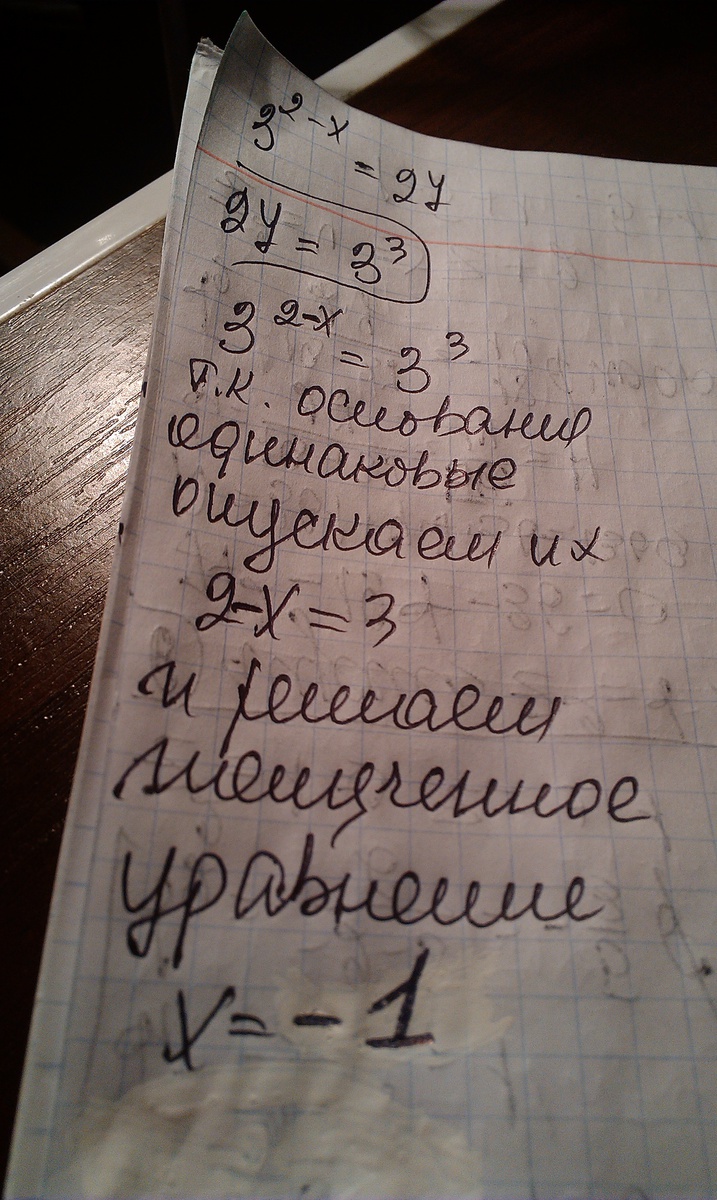 3^{2-x} = 27
27 = 3^3
3^{2-x} = 3^3
т.к. основания
одинаковые
опускаем их
2-x = 3
и решаем
уравнение
x = -1